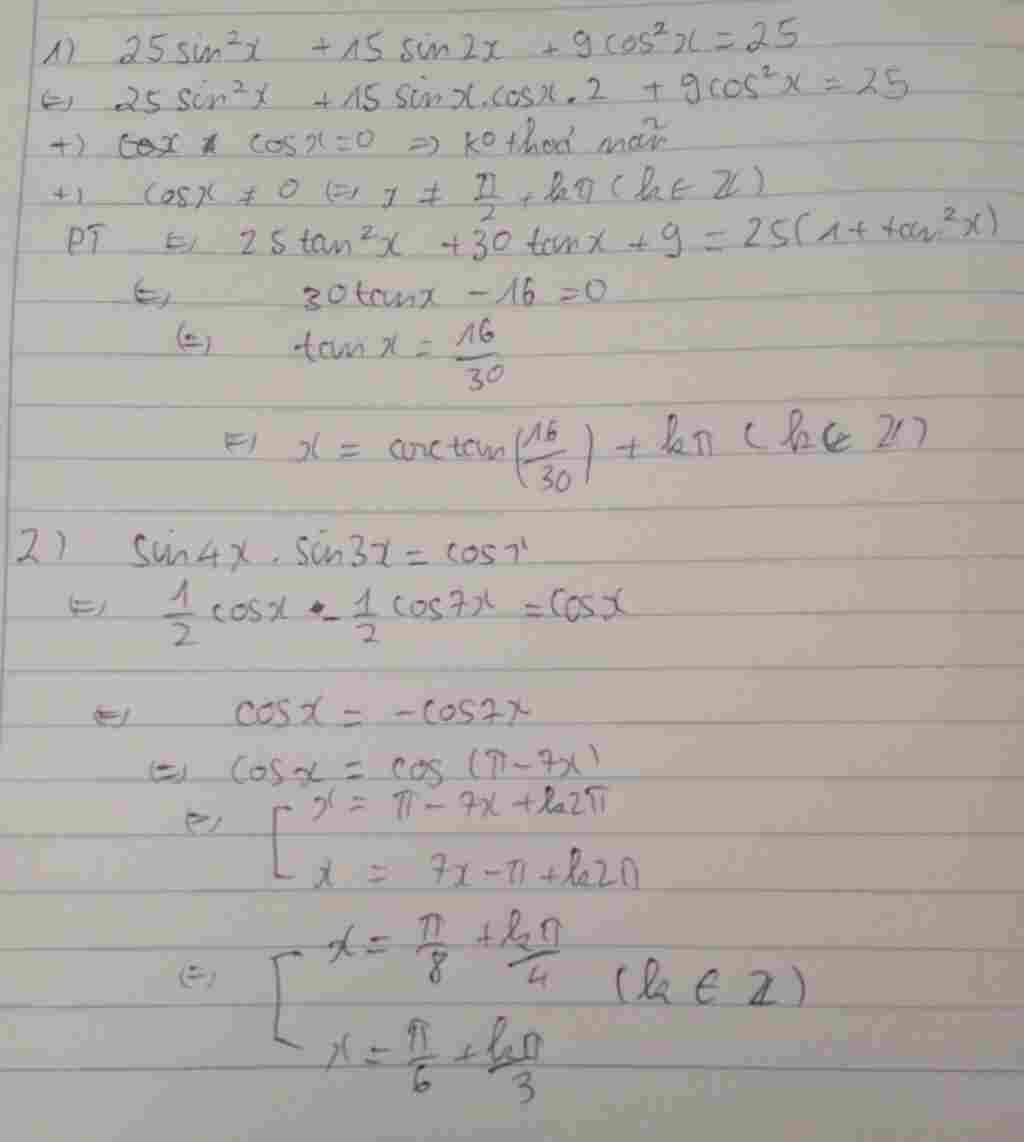 1) 25 sin²x + 15 sin 2x + 9 cos²x = 25
⇔ 25 sin²x + 15 sinx.cosx.2 + 9cos²x = 25
+) cosx = 0 ⇒ ko thoả mãn
+) cosx ≠ 0 ⇔ x ≠ π/2 + kπ (k ∈ Z)
PT ⇔ 25 tan²x + 30 tanx + 9 = 25(1 + tan²x)
⇔ 30tanx - 16 = 0
⇔ tan x = 16/30
⇔ x = arctan(16/30) + kπ (k ∈ Z)
2) sin4x . sin3x = cosx
⇔ 1/2 cosx - 1/2 cos7x = cosx
⇔ cosx = -cos7x
⇔ cosx = cos (π - 7x)
⇔ [ x = π - 7x + k2π
x = 7x - π + k2π
⇔ [ x = π/8 + kπ/4 (k ∈ Z)
x = π/6 + kπ/3